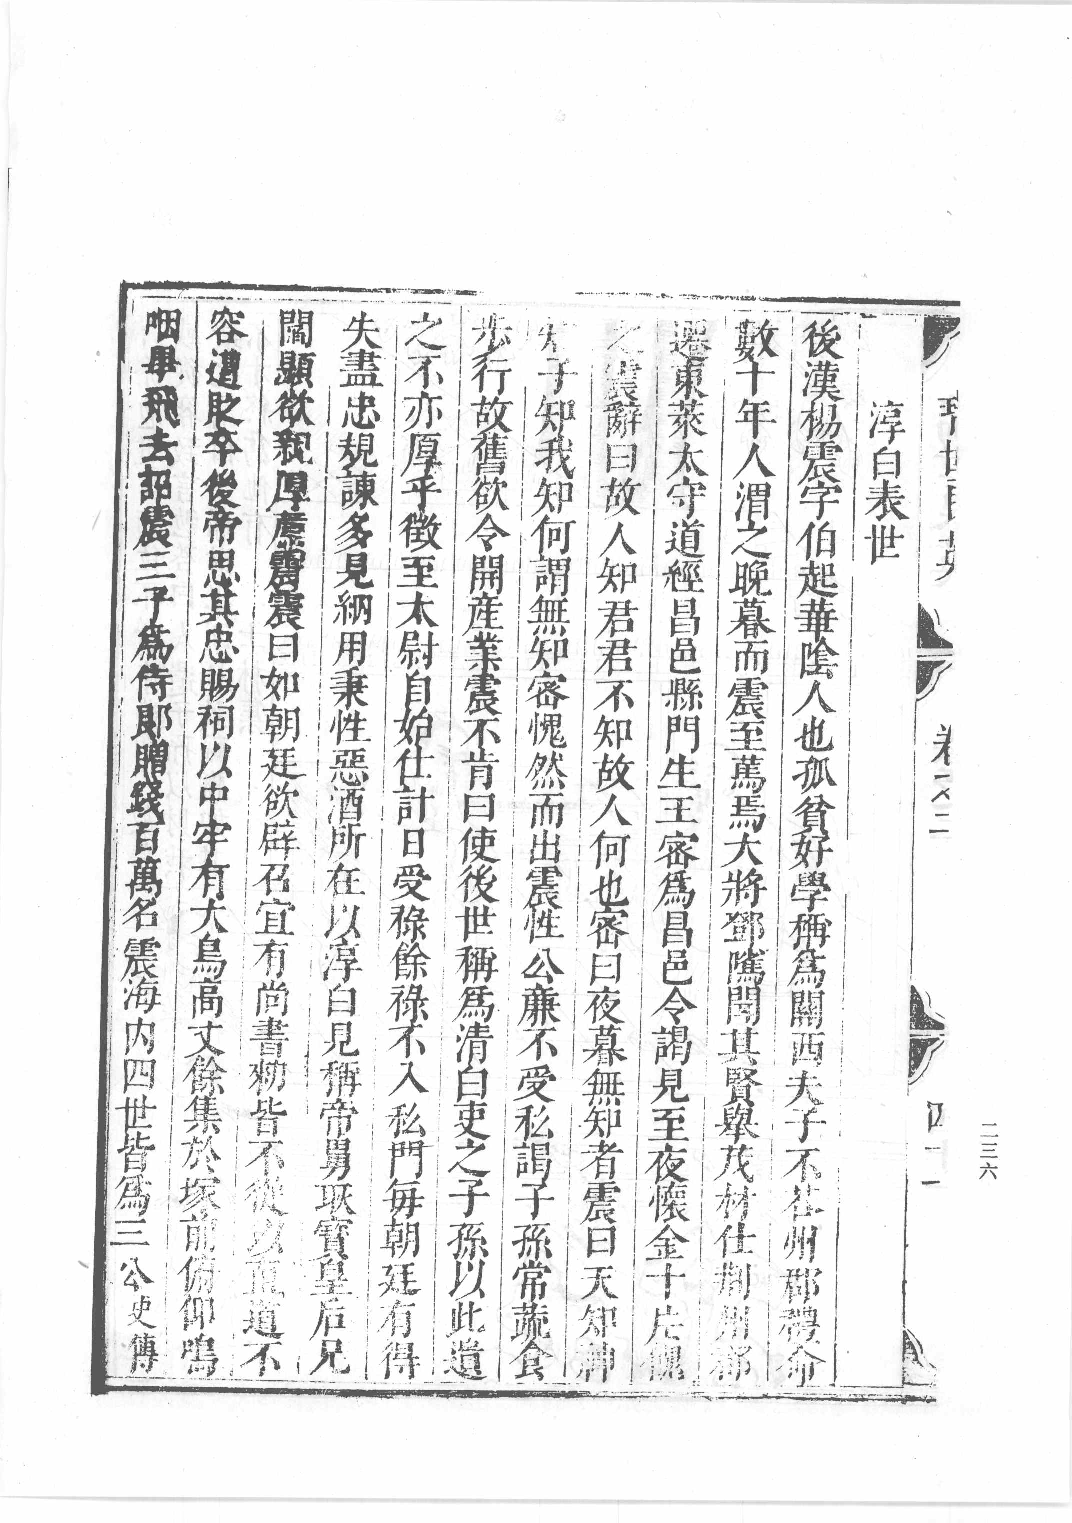 卷之二
四十一
二三六
淳白表世
後漢楊震字伯起華陰人也孤貧好學稱爲關西夫子不荅州郡禮命
數十年人渭之晚暮而震至篤焉大將鄧騭聞其賢舉茂材仕荆州郡
遷東萊太守道經昌邑縣門生王密爲昌邑令謁見至夜懷金十斤餽
之震辭曰故人知君君不知故人何也密曰夜暮無知者震曰天知神
知子知我知何謂無知密愧然而出震性公廉不受私謁子孫常蔬食
步行故舊欲令開産業震不肯曰使後世稱爲清白吏之子孫以此遺
之不亦厚乎徵至太尉自始仕計日受祿餘祿不入私門每朝廷有得
失盡忠規諫多見納用秉性惡酒所在以淳白見稱帝舅耿寳皇后兄
閻顯欲親厚薦震震曰如朝廷欲辟召宜有尚書勑皆不從以直道不
容遭貶卒後帝思其忠賜祠以中牢有大鳥高丈餘集於塚前俯仰鳴
咽畢飛去詔震三子爲侍郎贈錢百萬名震海内四世皆爲三公史傳